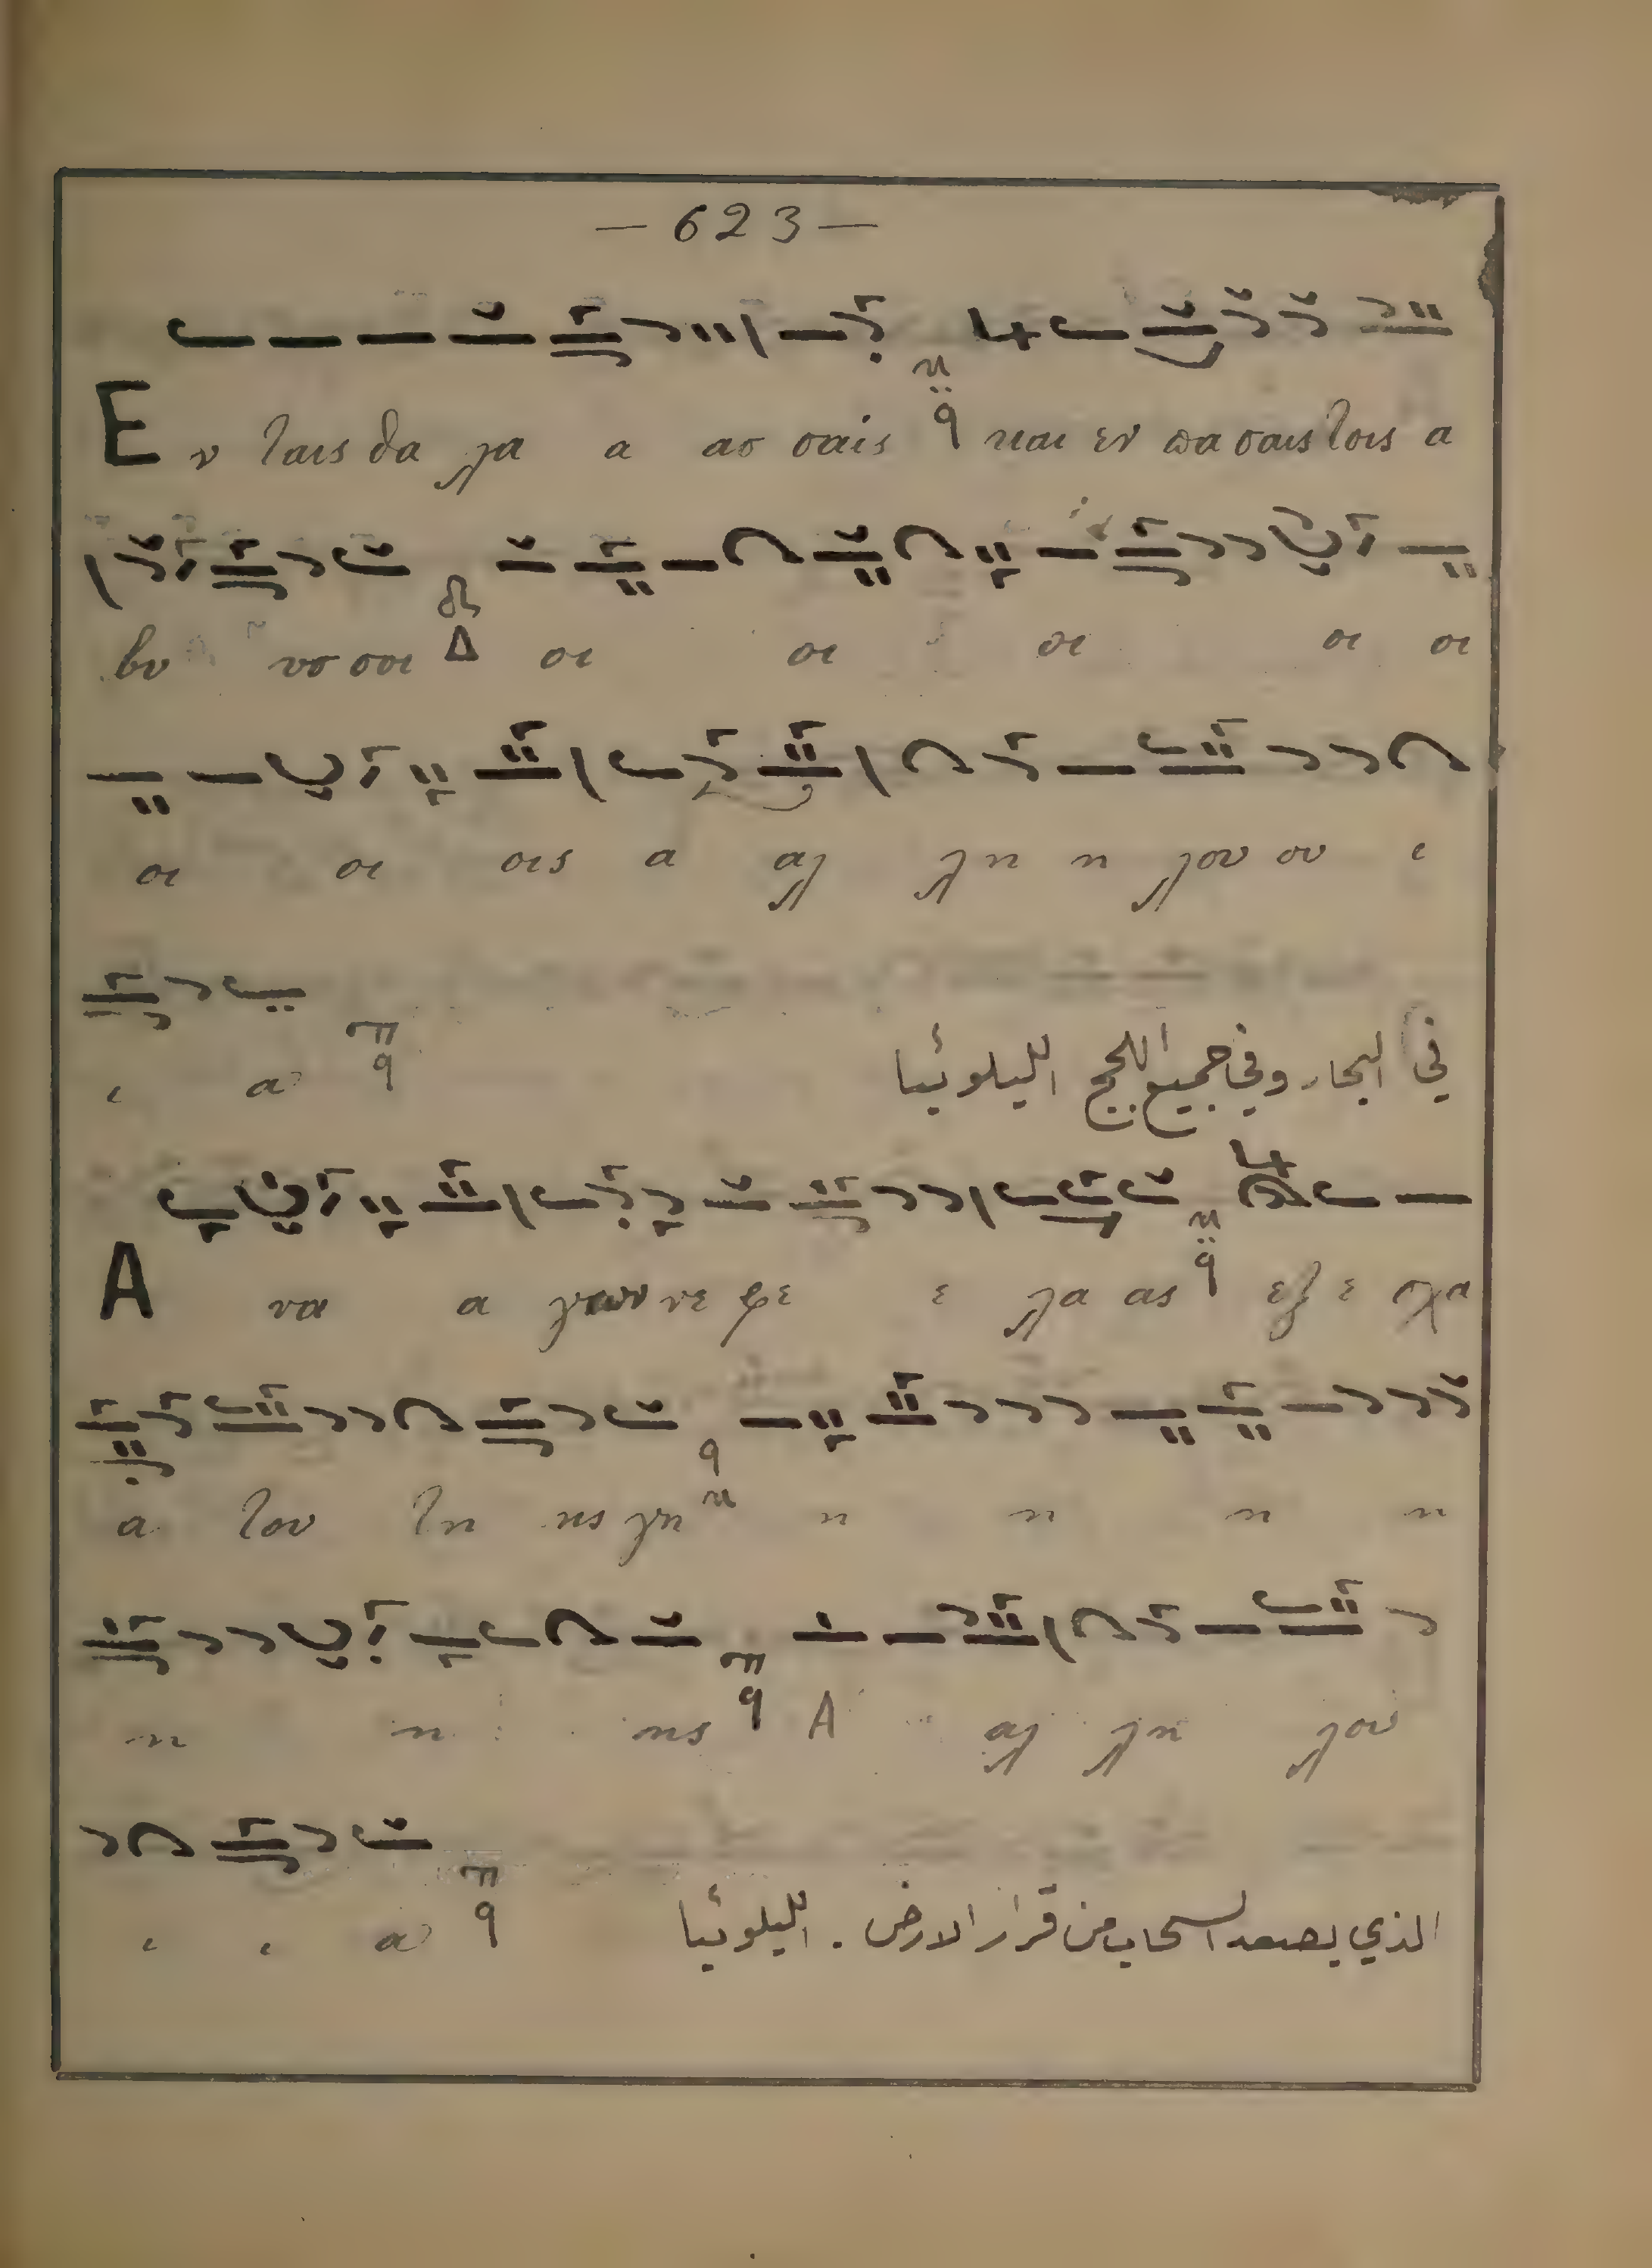 — 623 —
Ε ν ταις θα λα α ασ σαις και εν πα σαις τοις α
βυ υσ σοι Δ οι οι οι οι οι
οι οι οις α αλ λη η λου ου ι
ι α
في البحار وفي جميع اللجج الليلوئيا
Α να α γων νε φε ε λα ας εξ ε σχα
α του τη ης γη η η η η
η η ης Α αλ λη λου
ι ι α
الذي يصعد السحاب من قرار الارض . الليلوئيا